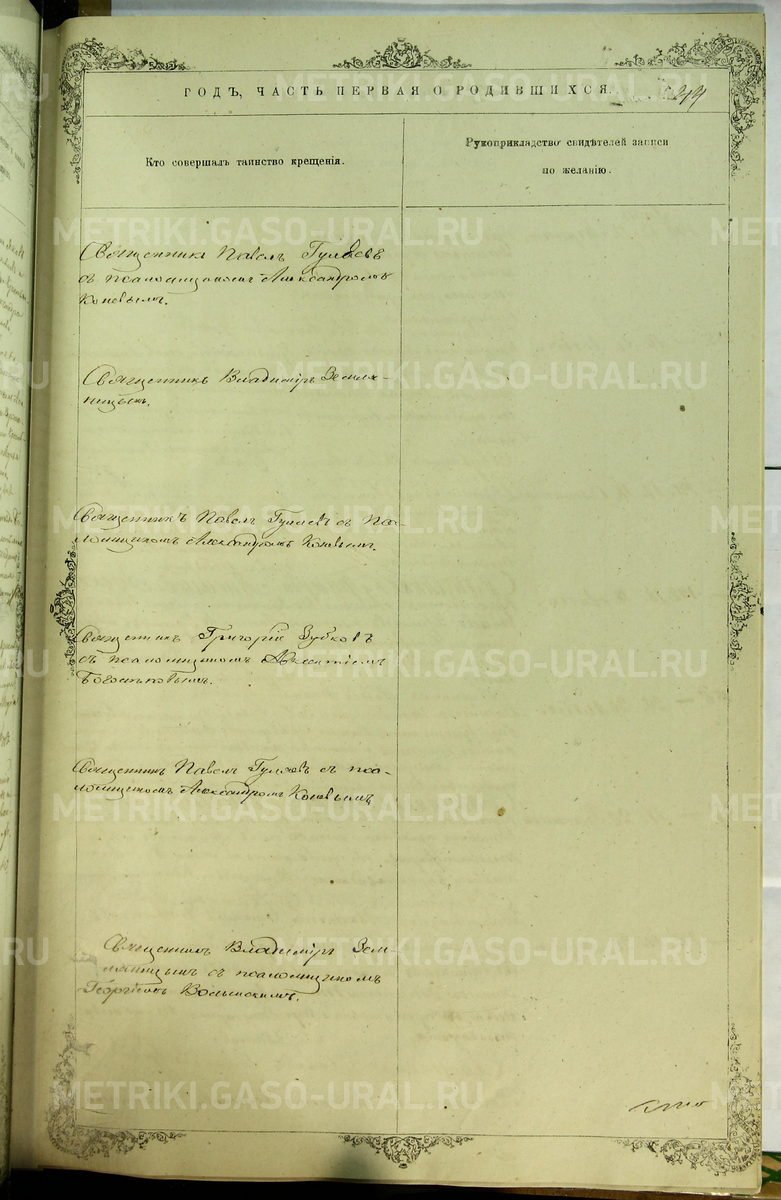 ГОДЪ, ЧАСТЬ ПЕРВАЯ О РОДИВШИХСЯ.
Кто совершалъ таинство крещенія.
Рукоприкладство свидѣтелей записи
по желанію.
Священникъ Павелъ Гуляевъ
съ псаломщикомъ Александромъ
Коновымъ.
Священникъ Владиміръ Земля-
ницынъ.
Священникъ Павелъ Гуляевъ съ пса-
ломщикомъ Александромъ Коновымъ.
Священникъ Григорій Зубковъ
съ псаломщикомъ
Богатыковымъ.
Священникъ Павелъ Гуляевъ съ пса-
ломщикомъ Александромъ Коновымъ
Священникъ Владиміръ Зем-
ляницынъ съ псаломщикомъ
Георгіемъ Волынскимъ.
METRIKI.GASO-URAL.RU